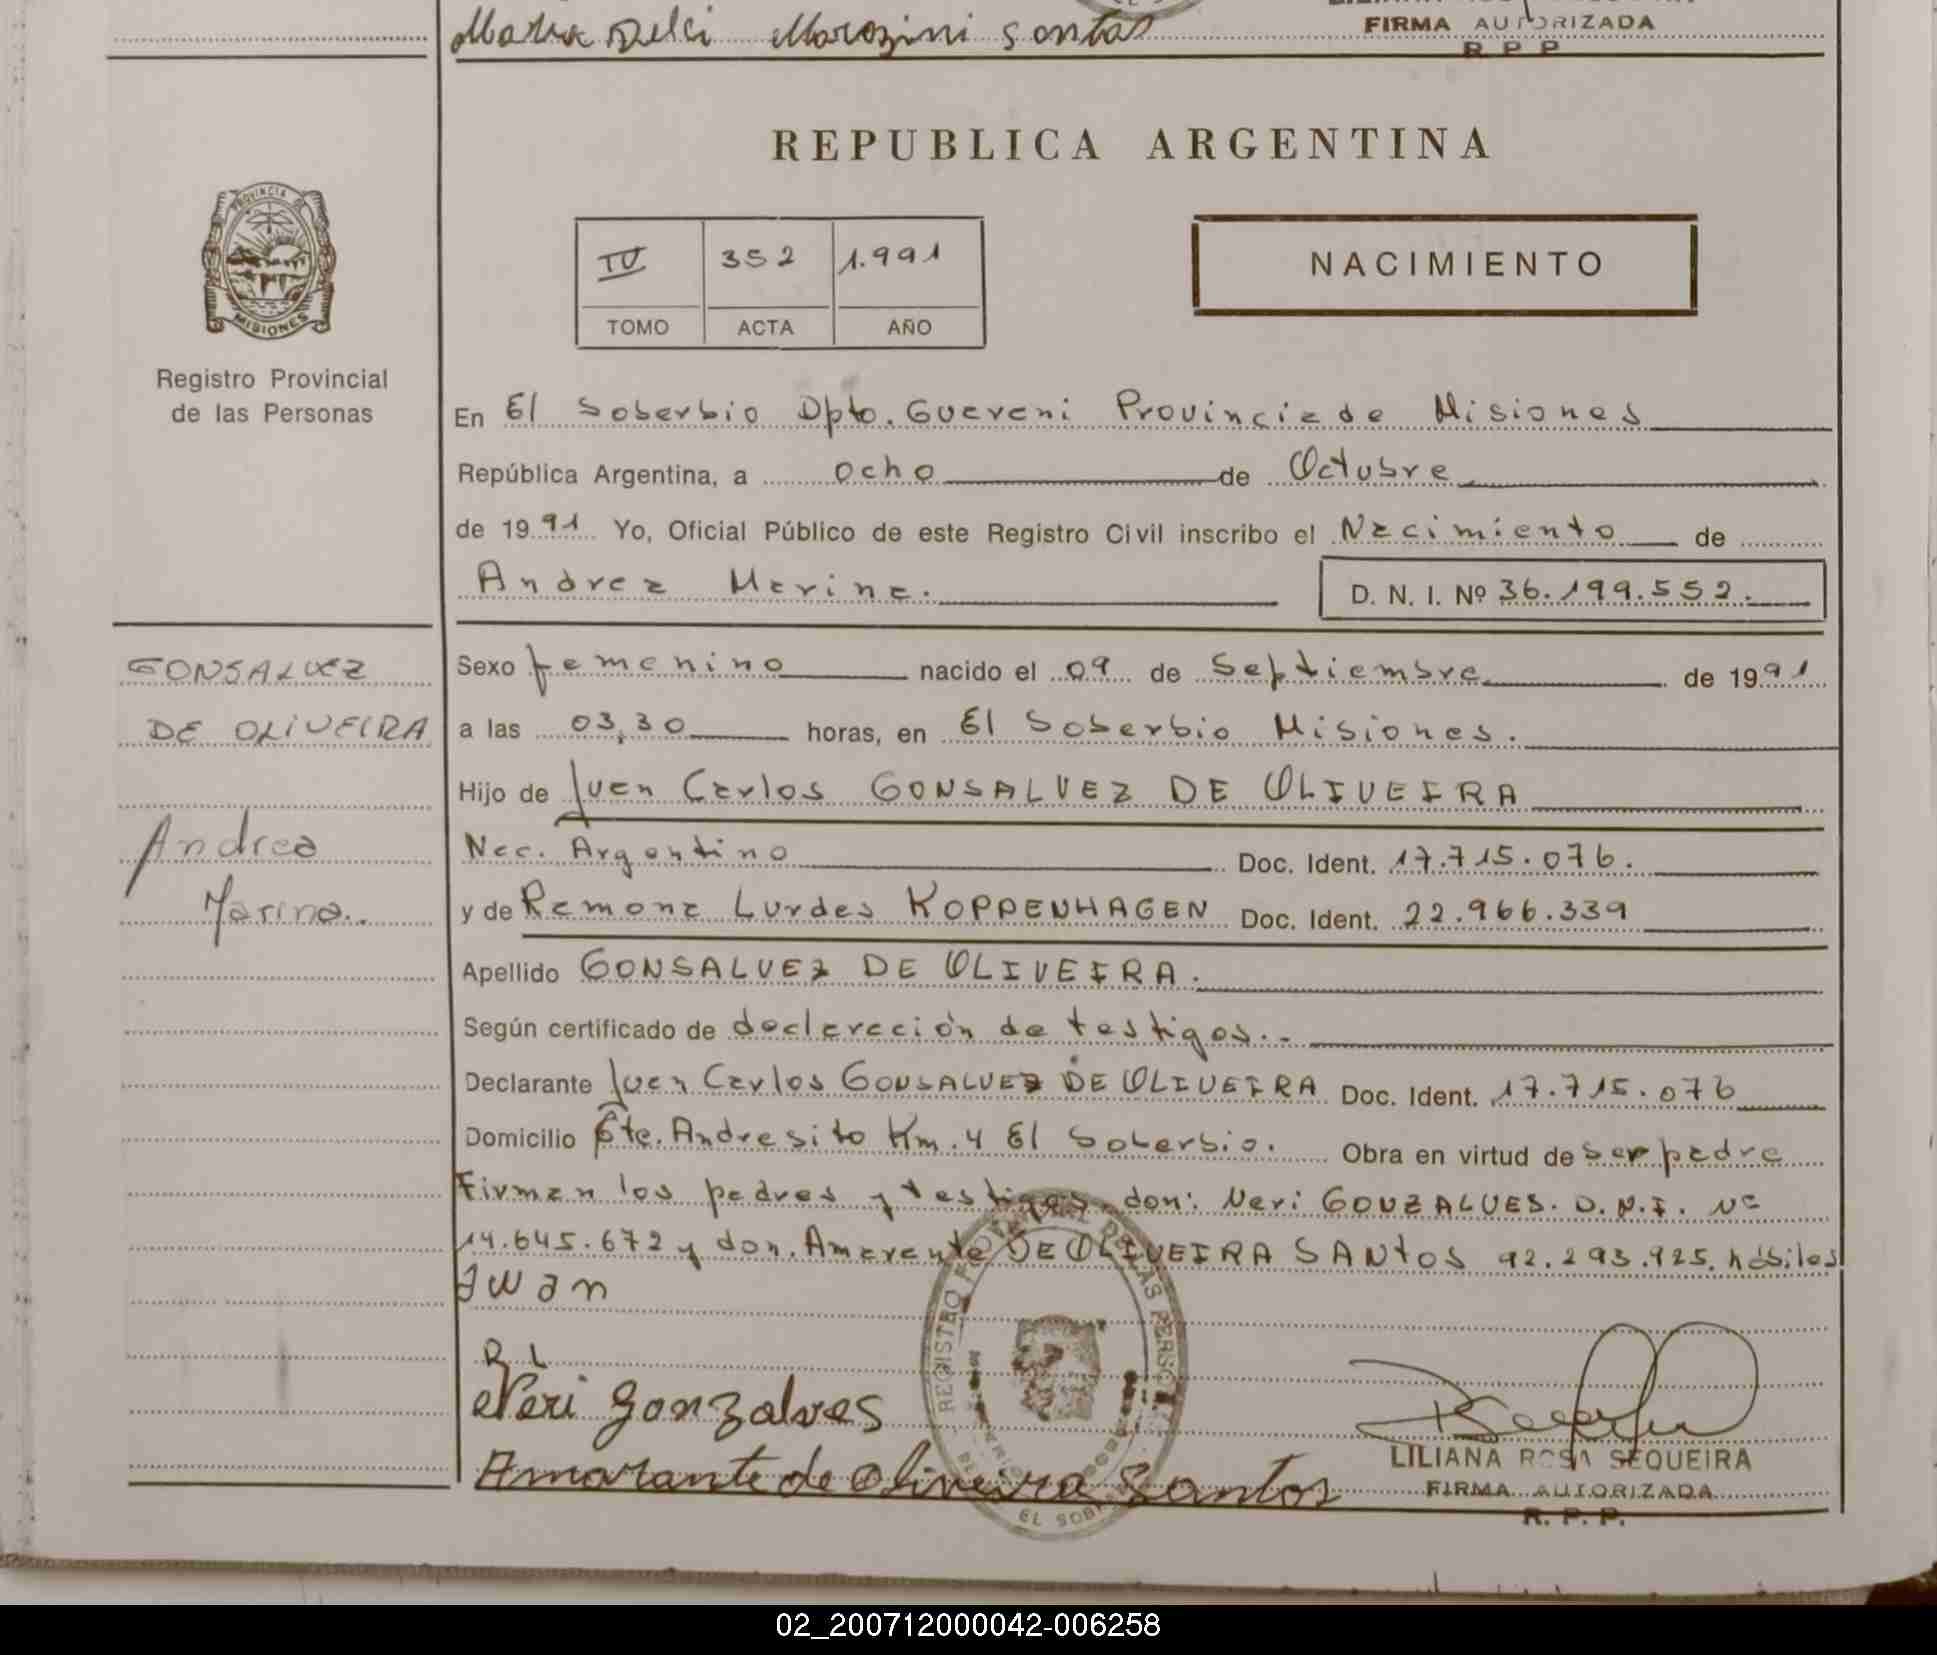 Maria Delci Morozini Santos
FIRMA AUTORIZADA
R P P
REPUBLICA ARGENTINA
PROVINCIA DE
MISIONES
Registro Provincial
de las Personas
IV 352 1.991
TOMO ACTA AÑO
NACIMIENTO
En El Soberbio Dpto. Guarani Provincia de Misiones
República Argentina, a ocho de Octubre
de 1991 Yo, Oficial Público de este Registro Civil inscribo el Nacimiento de
Andrea Marina. D. N. I. Nº 36.199.552.
GONSALVEZ
DE OLIVEIRA
Andrea
Marina..
Sexo femenino nacido el 09 de Septiembre de 1991
a las 03,30 horas, en El Soberbio Misiones.
Hijo de Juan Carlos GONSALVEZ DE OLIVEIRA
Nac. Argentino Doc. Ident. 17.715.076.
y de Ramona Lurdes KOPPENHAGEN Doc. Ident. 22.966.339
Apellido GONSALVEZ DE OLIVEIRA.
Según certificado de declaración de testigos..
Declarante Juan Carlos GONSALVEZ DE OLIVEIRA Doc. Ident. 17.715.076
Domicilio Pte. Andresito Km. 4 El Soberbio. Obra en virtud de ser padre
Firman los padres y testigos don: Neri GONZALVES. D.N.I. Nº
14.645.672 y don. Amarante DE OLIVEIRA SANTOS 92.293.925. hábiles
Juan
R L
Neri Gonzalves
Amarante de Oliveira Santos
REGISTRO PROVINCIAL DE LAS PERSONAS
EL SOBERBIO
LILIANA ROSA SEQUEIRA
FIRMA AUTORIZADA
R. P. P.
02_200712000042-006258